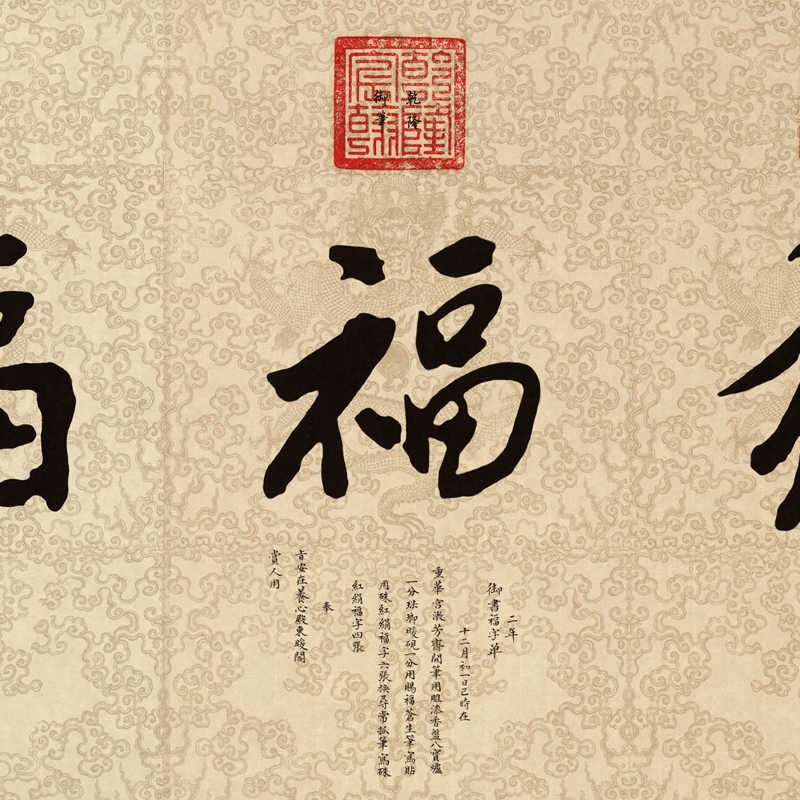 乾隆宸翰
乾隆
御筆
福
福
二年
御書福字單
十二月初一日巳時在
重華宮漱芳齋開筆用雕漆香盤八寶爐
一分珐瑯暖硯一分用賜福蒼生筆寫貼
用硃紅絹福字六張換尋常抓筆寫硃
紅絹福字四張
奉
旨安在養心殿東暖閣
賞人用